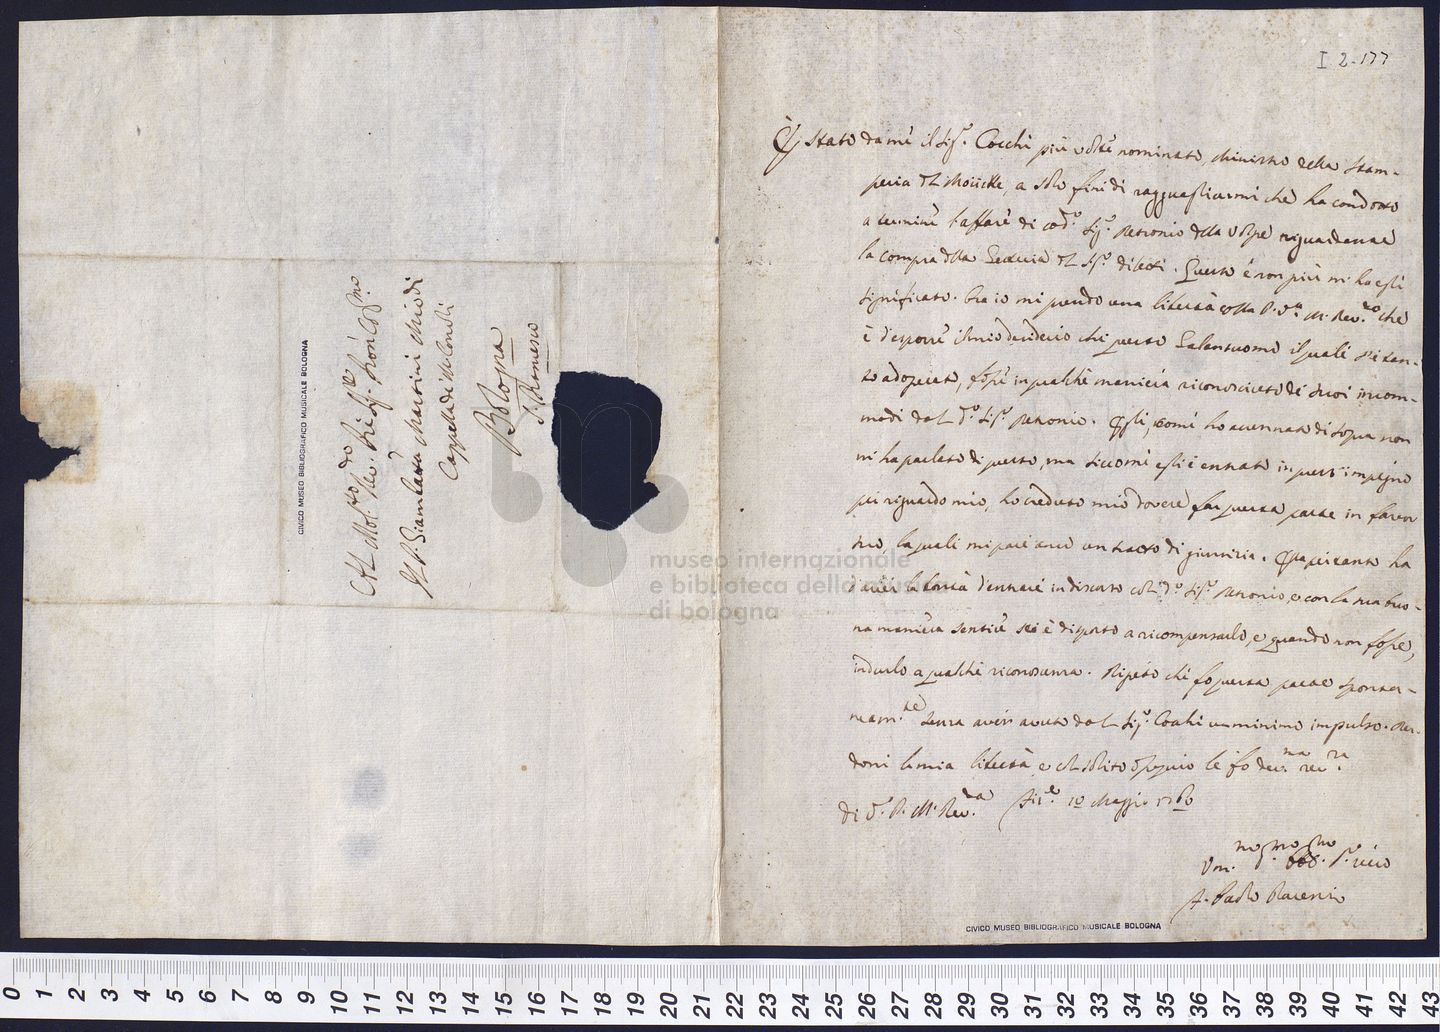 I 2-177
È stato da me il Sig.r Cocchi più volte nominato, Ministro della Stam-
peria del Moücke, a solo fine di ragguagliarmi che ha condotto
a termine l'affare di cod.o Sig.r Petronio della Volpe riguardante
la compra della del Sig.r. Questo e non più mi ha egli
significato. Ora io mi prendo una libertà colla P. V.ra M. Rev.da che
è d'esporre il mio desiderio che questo Galantuomo il quale s'è tan-
to adoperato, fosse in qualche maniera riconosciuto de' suoi incom-
modi dal d.o Sig.r Petronio. Egli, come ho accennato di sopra non
mi ha parlato di questo, ma siccome egli è entrato in quest'impegno
per riguardo mio, ho creduto mio dovere far questa parte in favor
suo, la quale mi pare anco un tratto di giustizia. Ella pertanto ha
d'aver la bontà d'entrare in discorso col d.o Sig.r Petronio, e con la sua buo-
na maniera sentire se è disposto a ricompensarlo, e quando non fosse,
indurlo a qualche riconoscenza. Ripeto che fo questa parte sponta-
neam.te senza aver avuto dal Sig.r Cocchi un minimo impulso. Per-
doni la mia libertà e col solito ossequio le fo dev.ma rev.za
di V. P. M. Rev.da Fir.e 10 Maggio 1760
Um.mo Obb.mo
F. Paolo
CIVICO MUSEO BIBLIOGRAFICO MUSICALE BOLOGNA
Al Mol.to Rev.do Pre Sig.r Pron Col.mo
Il P. Giambatta Martini Mro di
Cappella di Min. Conv.li
Bologna
S. Francesco
CIVICO MUSEO BIBLIOGRAFICO MUSICALE BOLOGNA
museo internazionale
e biblioteca della musica
di bologna
0 1 2 3 4 5 6 7 8 9 10 11 12 13 14 15 16 17 18 19 20 21 22 23 24 25 26 27 28 29 30 31 32 33 34 35 36 37 38 39 40 41 42 43